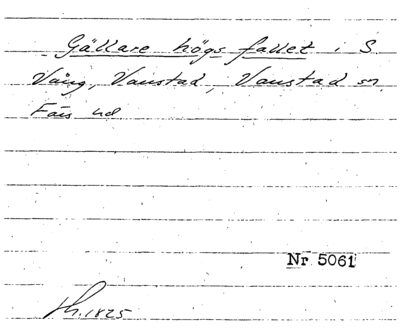 Gällare högs fallet i S
Vång, Vanstad, Vanstad sn
Färs hd
Nr 5061
Th. 1825